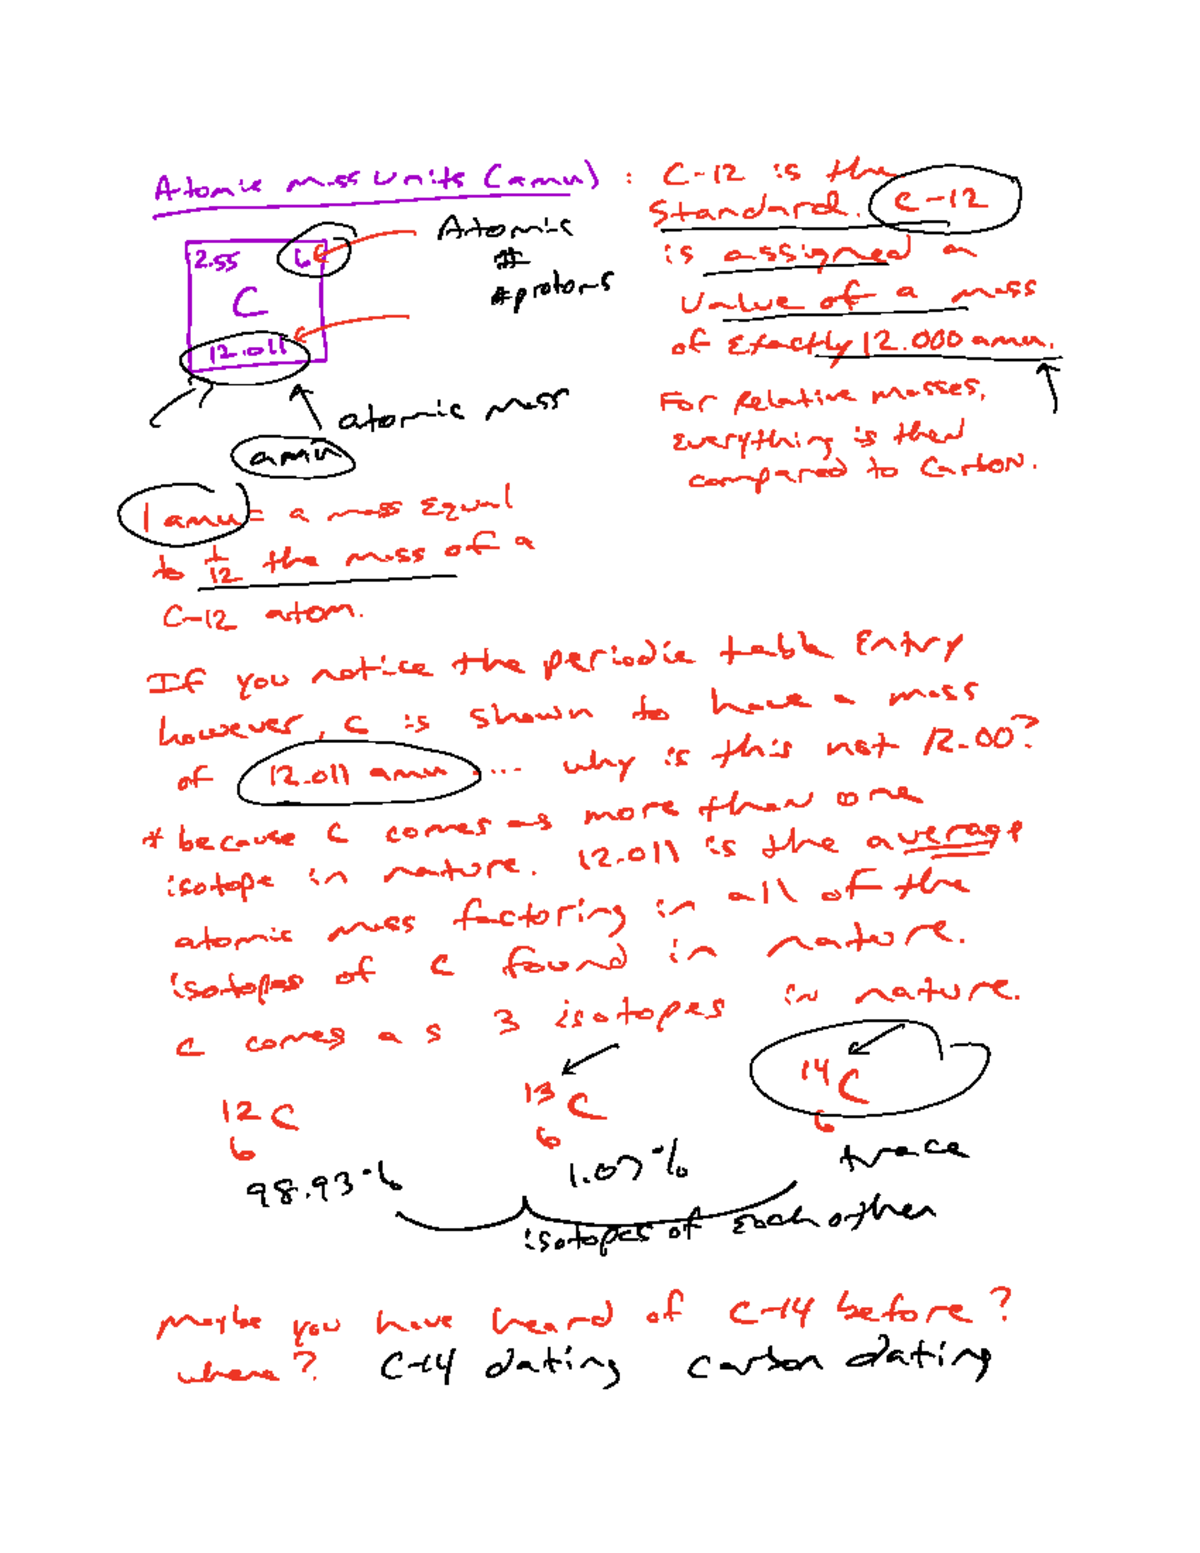 Atomic mass units (amu) : C-12 is the
standard. C-12
is assigned a
value of a mass
of exactly 12.000 amu.
For relative masses,
everything is then
compared to Carbon.
2.55 6
C
12.011
Atomic
#
# protons
atomic mass
amu
1 amu = a mass equal
to 1/12 the mass of a
C-12 atom.
If you notice the periodic table entry
however, C is shown to have a mass
of 12.011 amu .... why is this not 12.00?
* because C comes as more than one
isotope in nature. 12.011 is the average
atomic mass factoring in all of the
isotopes of C found in nature.
C comes as 3 isotopes in nature.
12 C 13 C 14 C
6 6 6
98.93% 1.07% trace
isotopes of each other
Maybe you have heard of C-14 before?
where? C-14 dating carbon dating